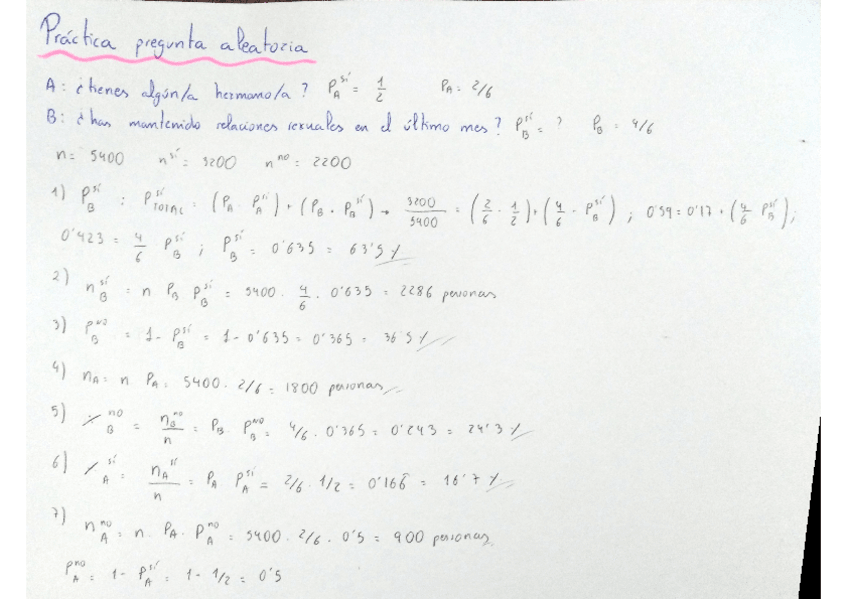 Práctica pregunta aleatoria
A: ¿tienes algún/a hermano/a? P_A^sí = 1/2 P_A = 2/6
B: ¿has mantenido relaciones sexuales en el último mes? P_B^sí = ? P_B = 4/6
n = 5400 n^sí = 3200 n^no = 2200
1) P_B^sí : P_TOTAL^sí = (P_A · P_A^sí) + (P_B · P_B^sí) → 3200/5400 = (2/6 · 1/2) + (4/6 · P_B^sí) ; 0'59 = 0'17 + (4/6 P_B^sí) ;
0'423 = 4/6 P_B^sí ; P_B^sí = 0'635 = 63'5 %
2) n_B^sí = n P_B P_B^sí = 5400 · 4/6 · 0'635 = 2286 personas
3) P_B^no = 1 - P_B^sí = 1 - 0'635 = 0'365 = 36'5 %
4) n_A = n · P_A = 5400 · 2/6 = 1800 personas
5) %_B^no = n_B^no/n = P_B · P_B^no = 4/6 · 0'365 = 0'243 = 24'3 %
6) %_A^sí = n_A^sí/n = P_A P_A^sí = 2/6 · 1/2 = 0'166 = 16'7 %
7) n_A^no = n · P_A · P_A^no = 5400 · 2/6 · 0'5 = 900 personas
P_A^no = 1 - P_A^sí = 1 - 1/2 = 0'5